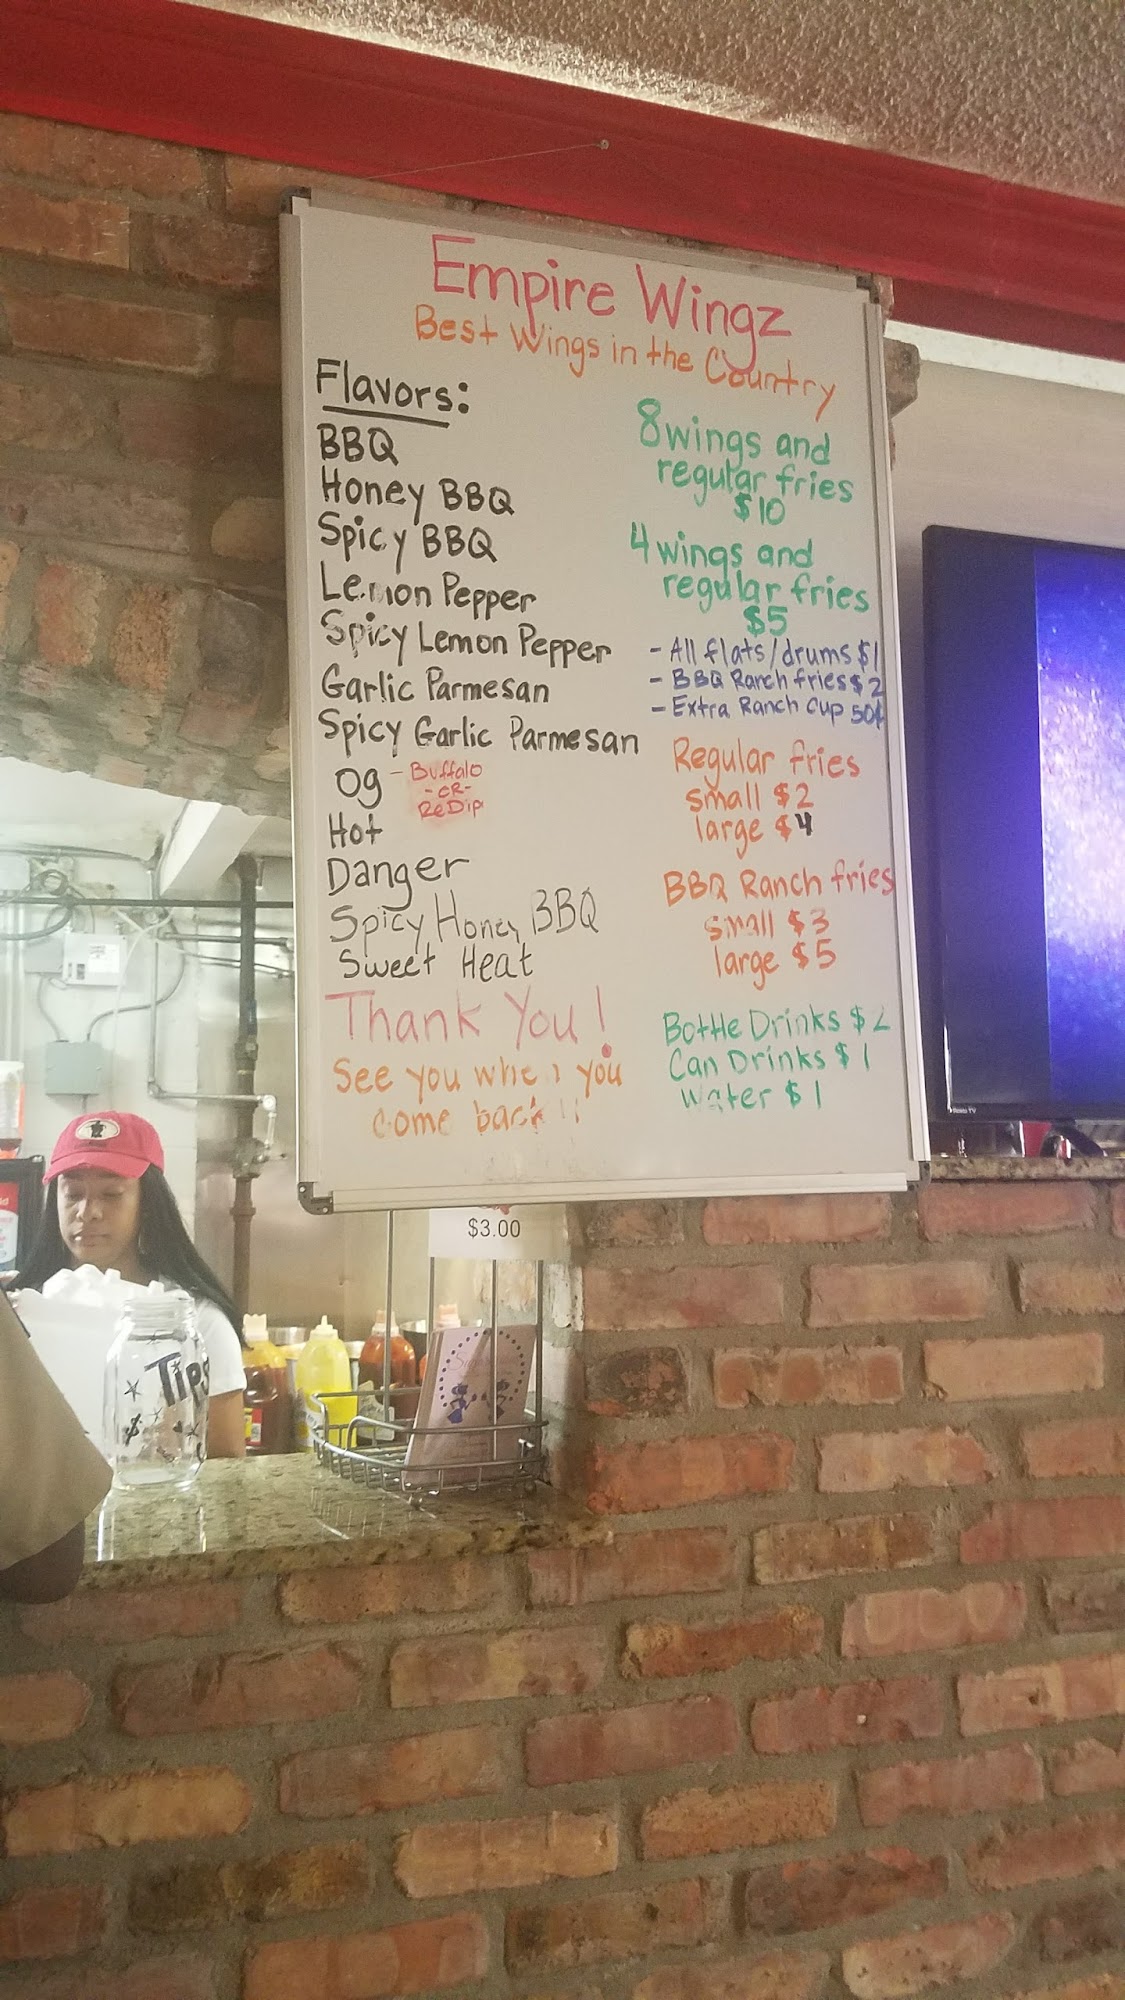 Empire Wingz
Best Wings in the Country
Flavors:
BBQ
Honey BBQ
Spicy BBQ
Lemon Pepper
Spicy Lemon Pepper
Garlic Parmesan
Spicy Garlic Parmesan
Og - Buffalo
-OR-
ReDip
Hot
Danger
Spicy Honey BBQ
Sweet Heat
Thank You!
See you when you
come back!!
8 wings and
regular fries
$10
4 wings and
regular fries
$5
- All flats/drums $1
- BBQ Ranch fries $2
- Extra Ranch Cup 50¢
Regular fries
small $2
large $4
BBQ Ranch fries
small $3
large $5
Bottle Drinks $2
Can Drinks $1
Water $1
$3.00
Tips
Roku TV